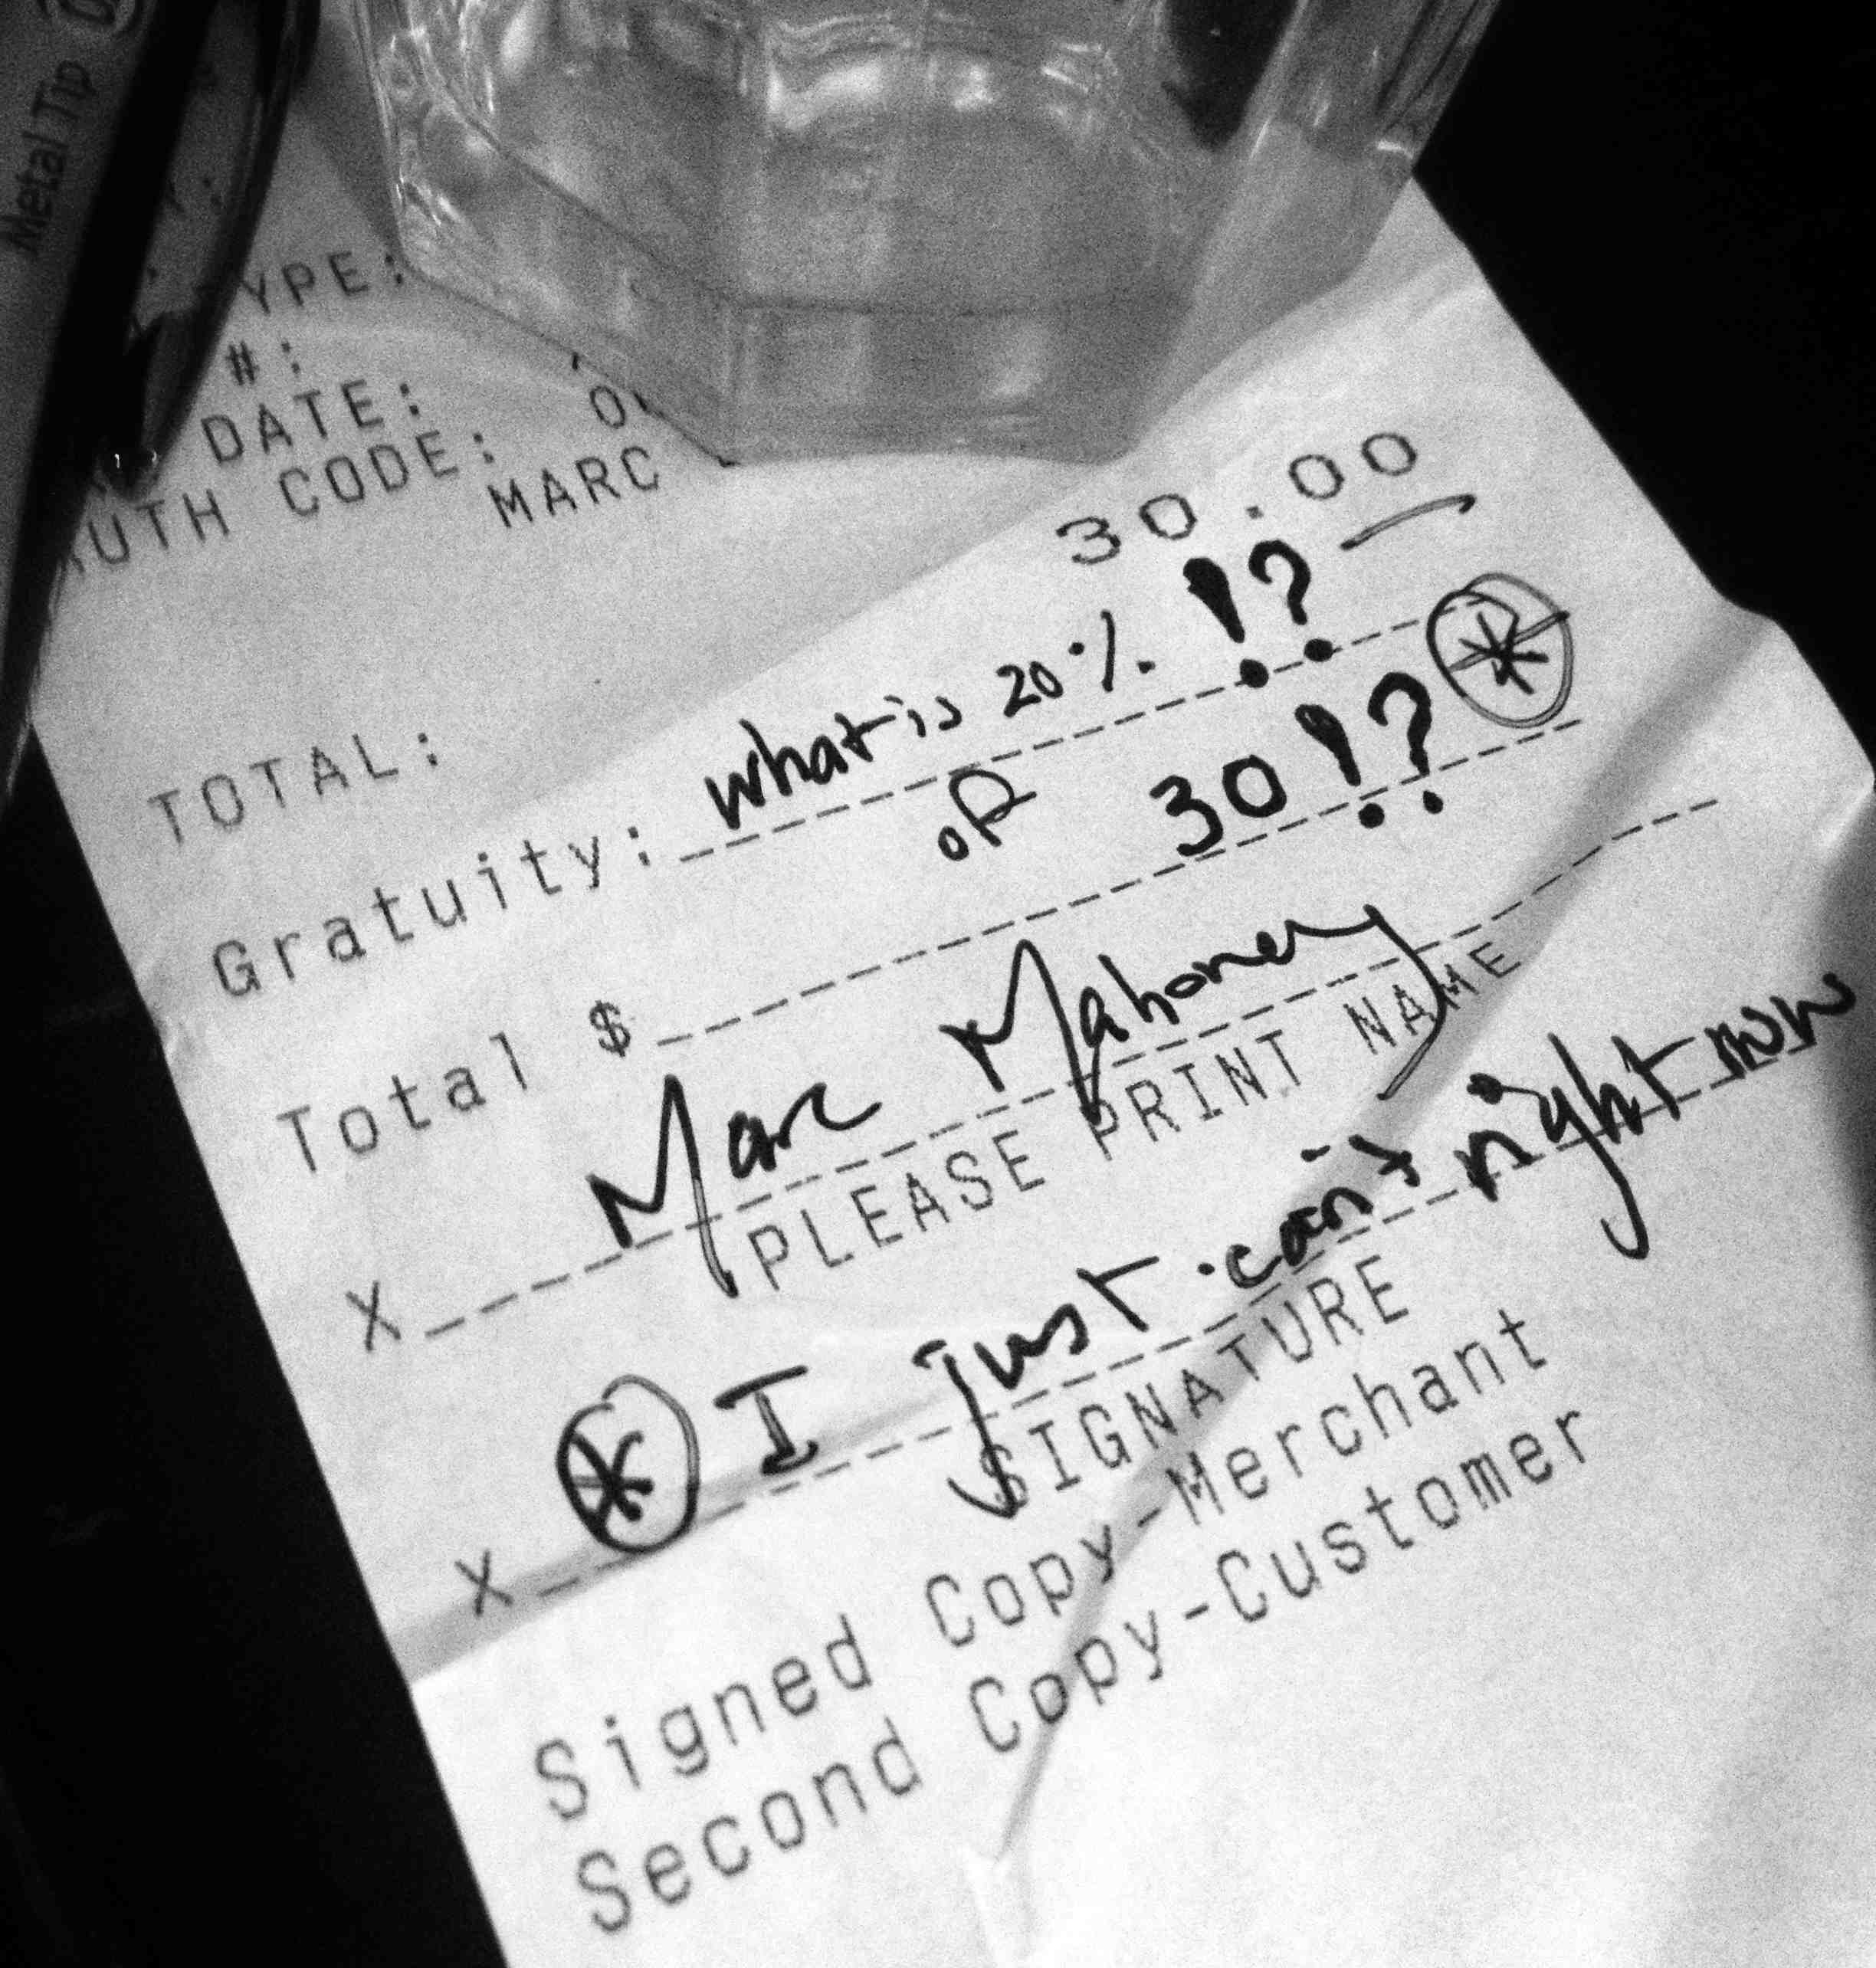 Metal Tip
YPE:
#:
DATE:
UTH CODE:
MARC
TOTAL: 30.00
Gratuity: what is 20% !?
Total $ of 30!? *
X Marc Mahoney
PLEASE PRINT NAME
X * I just can't right now
SIGNATURE
Signed Copy-Merchant
Second Copy-Customer